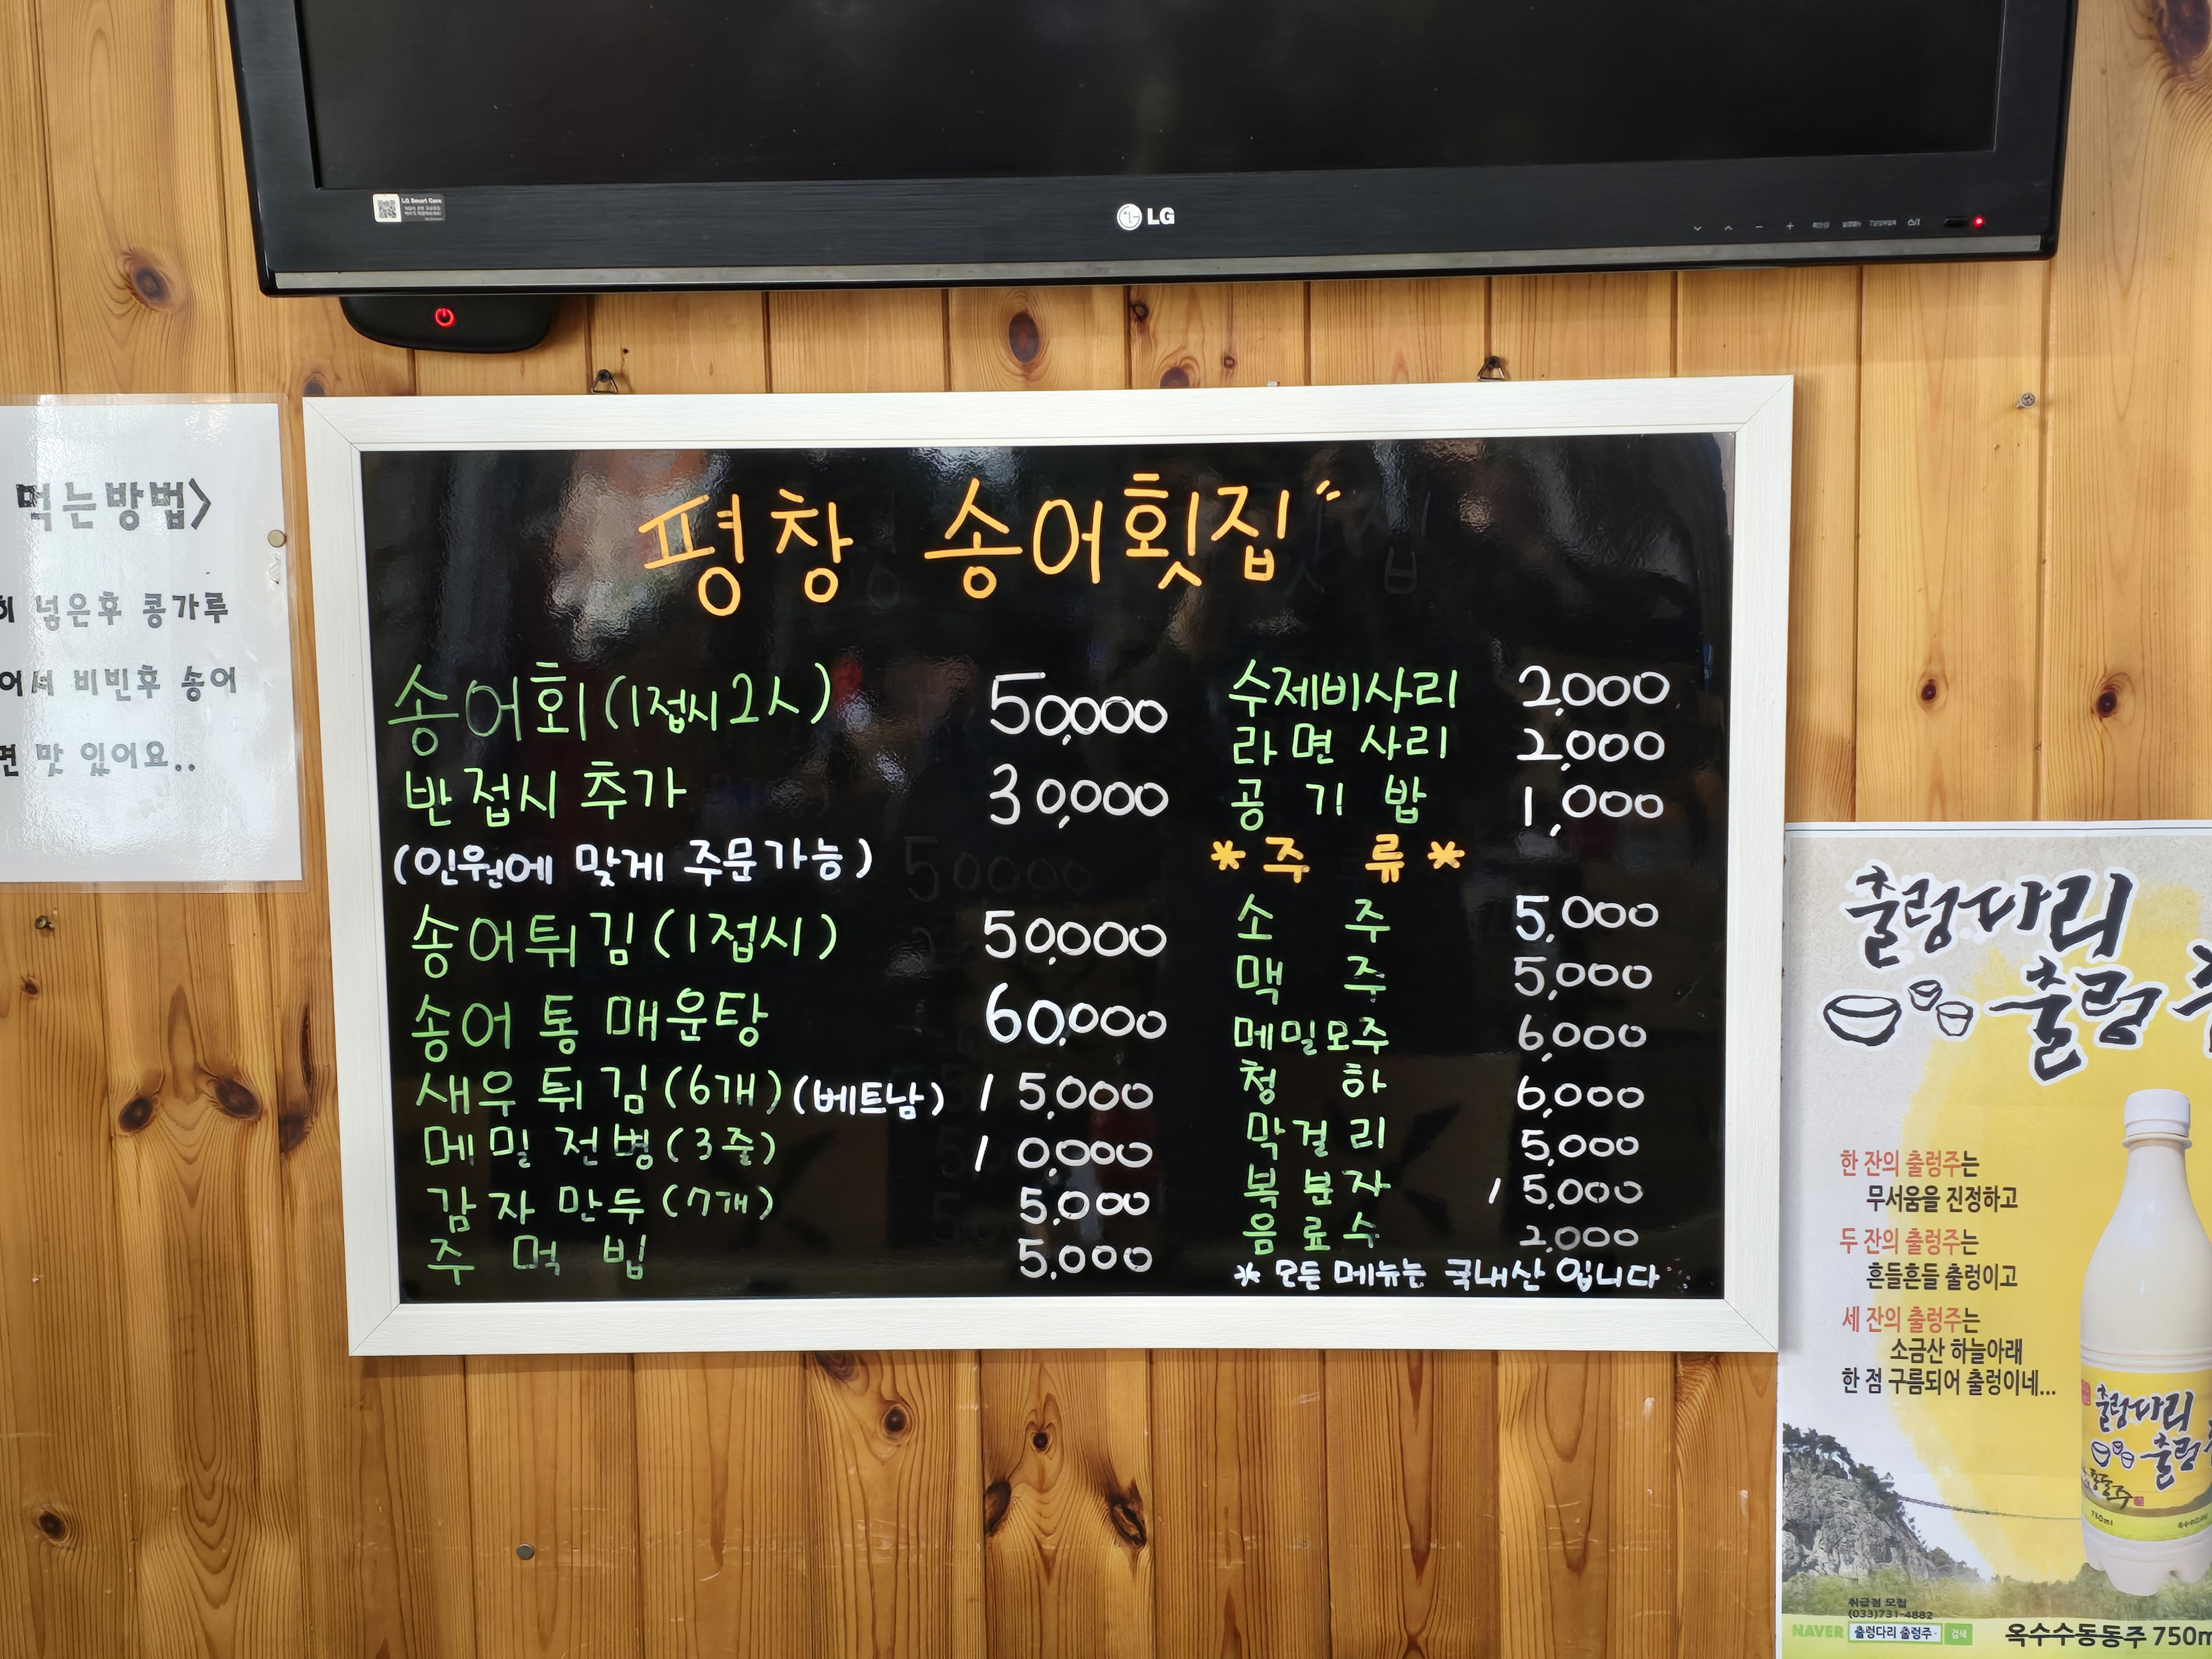 LG Smart Care
LG
먹는방법>
히 넣은후 콩가루
어서 비빈후 송어
면 맛 있어요..
평창 송어횟집
송어회(1접시2人) 50,000
반접시 추가 30,000
(인원에 맞게 주문가능)
송어튀김(1접시) 50,000
송어 통 매운탕 60,000
새우 튀김(6개)(베트남) 15,000
메밀 전병(3줄) 10,000
감자 만두(7개) 5,000
주먹밥 5,000
수제비사리 2,000
라면 사리 2,000
공기밥 1,000
*주 류*
소주 5,000
맥주 5,000
메밀모주 6,000
청하 6,000
막걸리 5,000
복분자 15,000
음료수 2,000
* 모든 메뉴는 국내산 입니다
출렁다리
출렁주
한 잔의 출렁주는
무서움을 진정하고
두 잔의 출렁주는
흔들흔들 출렁이고
세 잔의 출렁주는
소금산 하늘아래
한 점 구름되어 출렁이네...
출렁다리
출렁
동동주
750ml
취급점 모집
(033)731-4882
NAVER 출렁다리 출렁주 검색
옥수수동동주 750m